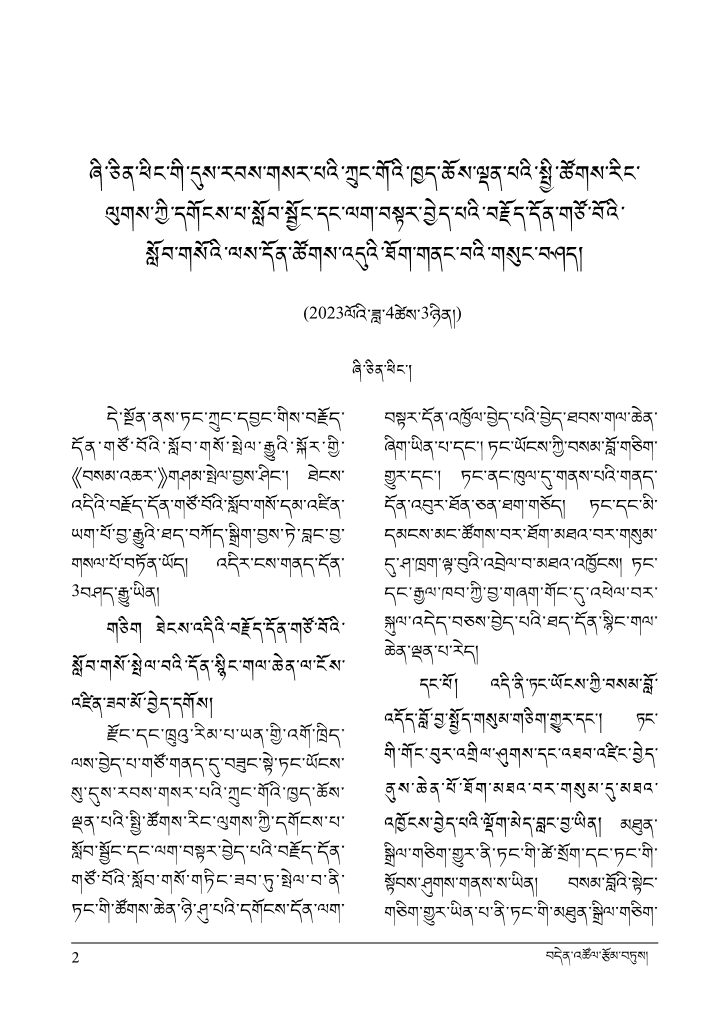 ཞི་ཅིན་ཕིང་གི་དུས་རབས་གསར་པའི་ཀྲུང་གོའི་ཁྱད་ཆོས་ལྡན་པའི་སྤྱི་ཚོགས་རིང་
ལུགས་ཀྱི་དགོངས་པ་སློབ་སྦྱོང་དང་ལག་བསྟར་བྱེད་པའི་བརྗོད་དོན་གཙོ་བོའི་
སློབ་གསོའི་ལས་དོན་ཚོགས་འདུའི་ཐོག་གནང་བའི་གསུང་བཤད།
(2023ལོའི་ཟླ་4ཚེས་3ཉིན།)
ཞི་ཅིན་ཕིང་།
དེ་སྔོན་ནས་ཏང་ཀྲུང་དབྱང་གིས་བརྗོད་
དོན་གཙོ་བོའི་སློབ་གསོ་སྤེལ་རྒྱུའི་སྐོར་གྱི་
《བསམ་འཆར་》གཤམ་སྤེལ་བྱས་ཤིང་། ཐེངས་
འདིའི་བརྗོད་དོན་གཙོ་བོའི་སློབ་གསོ་དམ་འཛིན་
ཡག་པོ་བྱ་རྒྱུའི་ཐད་བཀོད་སྒྲིག་བྱས་ཏེ་བླང་བྱ་
གསལ་པོ་བཏོན་ཡོད། འདིར་ངས་གནད་དོན་
3བཤད་རྒྱུ་ཡིན།
གཅིག ཐེངས་འདིའི་བརྗོད་དོན་གཙོ་བོའི་
སློབ་གསོ་སྤེལ་བའི་དོན་སྙིང་གལ་ཆེན་ལ་ངོས་
འཛིན་ཟབ་མོ་བྱེད་དགོས།
རྫོང་དང་ཁྲུའུ་རིམ་པ་ཡན་གྱི་འགོ་ཁྲིད་
ལས་བྱེད་པ་གཙོ་གནད་དུ་བཟུང་སྟེ་ཏང་ཡོངས་
སུ་དུས་རབས་གསར་པའི་ཀྲུང་གོའི་ཁྱད་ཆོས་
ལྡན་པའི་སྤྱི་ཚོགས་རིང་ལུགས་ཀྱི་དགོངས་པ་
སློབ་སྦྱོང་དང་ལག་བསྟར་བྱེད་པའི་བརྗོད་དོན་
གཙོ་བོའི་སློབ་གསོ་གཏིང་ཟབ་ཏུ་སྤེལ་བ་ནི་
ཏང་གི་ཚོགས་ཆེན་ཉི་ཤུ་པའི་དགོངས་དོན་ལག་
བསྟར་དོན་འཁྱོལ་བྱེད་པའི་བྱེད་ཐབས་གལ་ཆེན་
ཞིག་ཡིན་པ་དང་། ཏང་ཡོངས་ཀྱི་བསམ་བློ་གཅིག་
གྱུར་དང་། ཏང་ནང་ཁུལ་དུ་གནས་པའི་གནད་
དོན་འབུར་ཐོན་ཅན་ཐག་གཅོད། ཏང་དང་མི་
དམངས་མང་ཚོགས་བར་ཐོག་མཐའ་བར་གསུམ་
དུ་ཤ་ཁྲག་ལྟ་བུའི་འབྲེལ་བ་མཐའ་འཁྱོངས། ཏང་
དང་རྒྱལ་ཁབ་ཀྱི་བྱ་གཞག་གོང་དུ་འཕེལ་བར་
སྐུལ་འདེད་བཅས་བྱེད་པའི་ཐད་དོན་སྙིང་གལ་
ཆེན་ལྡན་པ་རེད།
དང་པོ། འདི་ནི་ཏང་ཡོངས་ཀྱི་བསམ་བློ་
འདོད་བློ་བྱ་སྤྱོད་གསུམ་གཅིག་གྱུར་དང་། ཏང་
གི་གོང་བུར་འགྲིལ་ཤུགས་དང་འཐབ་འཛིང་བྱེད་
ནུས་ཆེན་པོ་ཐོག་མཐའ་བར་གསུམ་དུ་མཐའ་
འཁྱོངས་བྱེད་པའི་ལྡོག་མེད་བླང་བྱ་ཡིན། མཐུན་
སྒྲིལ་གཅིག་གྱུར་ནི་ཏང་གི་ཚེ་སྲོག་དང་ཏང་གི་
སྟོབས་ཤུགས་གནས་ས་ཡིན། བསམ་བློའི་སྟེང་
གཅིག་གྱུར་ཡིན་པ་ནི་ཏང་གི་མཐུན་སྒྲིལ་གཅིག་
2
བདེན་འཚོལ་རྩོམ་བཏུས།